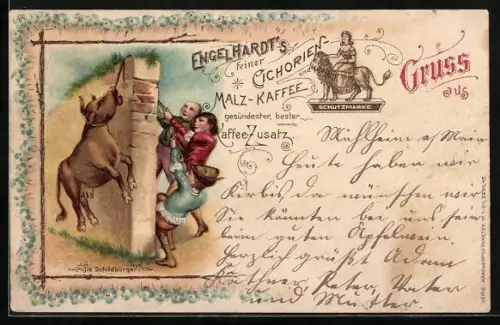 ENGELHARDT'S
feiner
CICHORIEN und
MALZ-KAFFEE
gesündester, bester
Kaffee Zusatz
SCHUTZMARKE
Gruss
aus
Mühlheim a/Main
Heute haben wir
Kirbis, da wünschen wir
Sie könnten bei uns sein
beim guten Apfelwein.
Herzlich grüßt Adam
Käthner, Peter, Vater
und Mutter.
Die Schildbürger
SERIE: MÄRCHENPOSTKARTEN